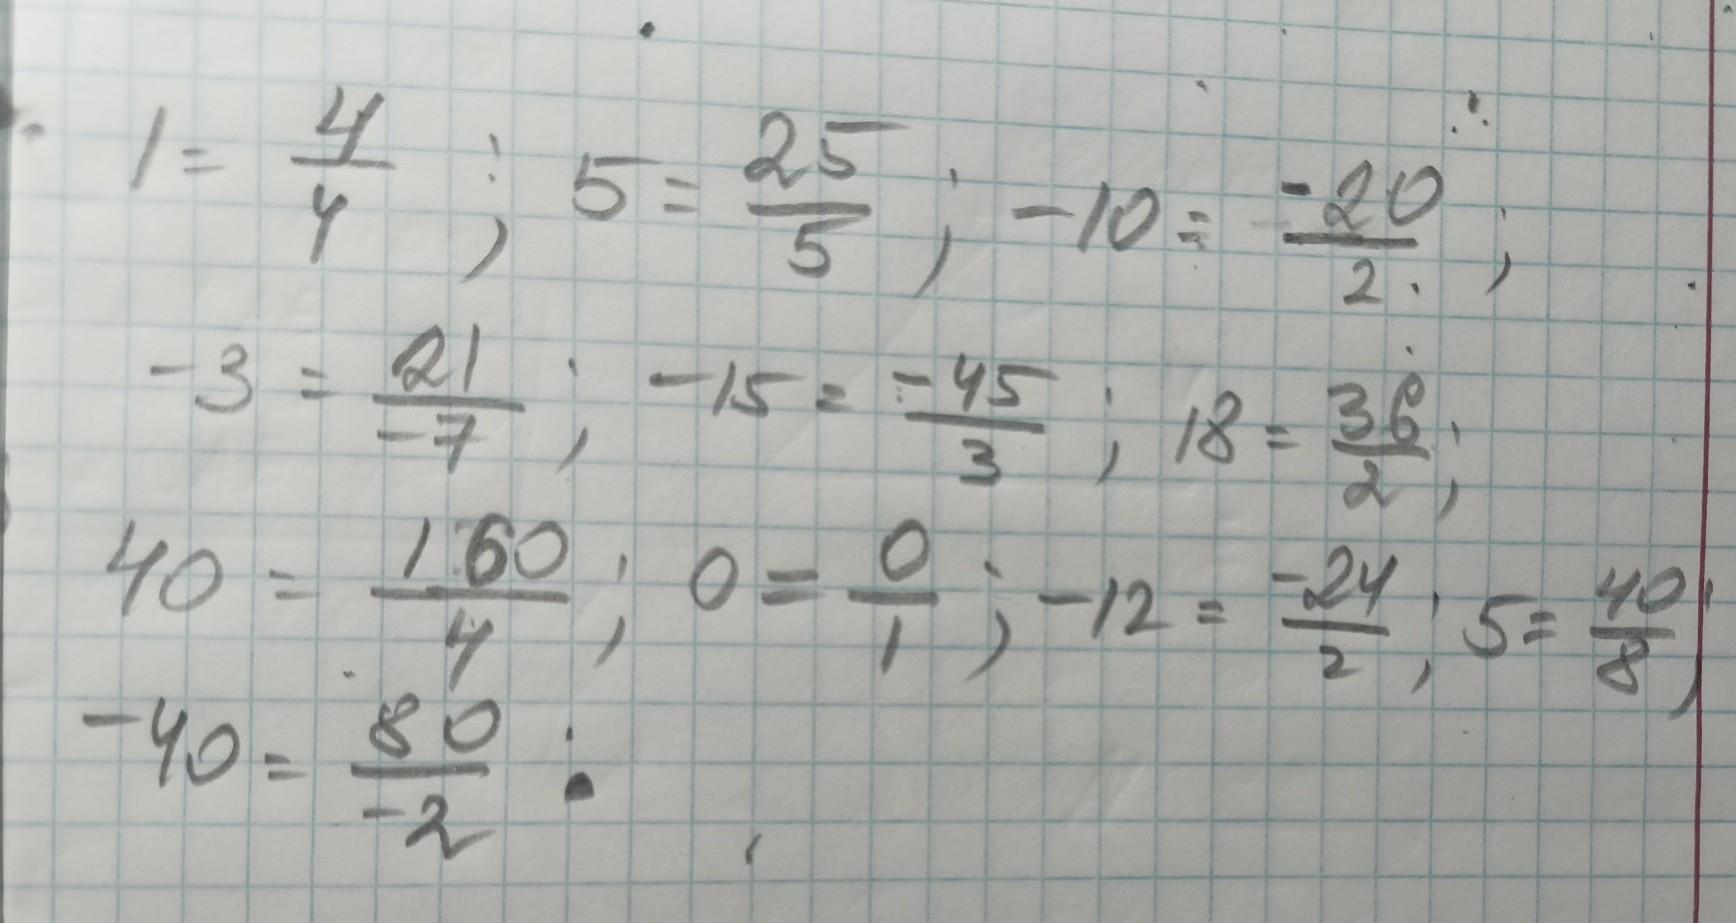 1 = 4/4 ; 5 = 25/5 ; -10 = -20/2 ;
-3 = 21/-7 ; -15 = -45/3 ; 18 = 36/2 ;
40 = 160/4 ; 0 = 0/1 ; -12 = -24/2 ; 5 = 40/8 ;
-40 = 80/-2 .